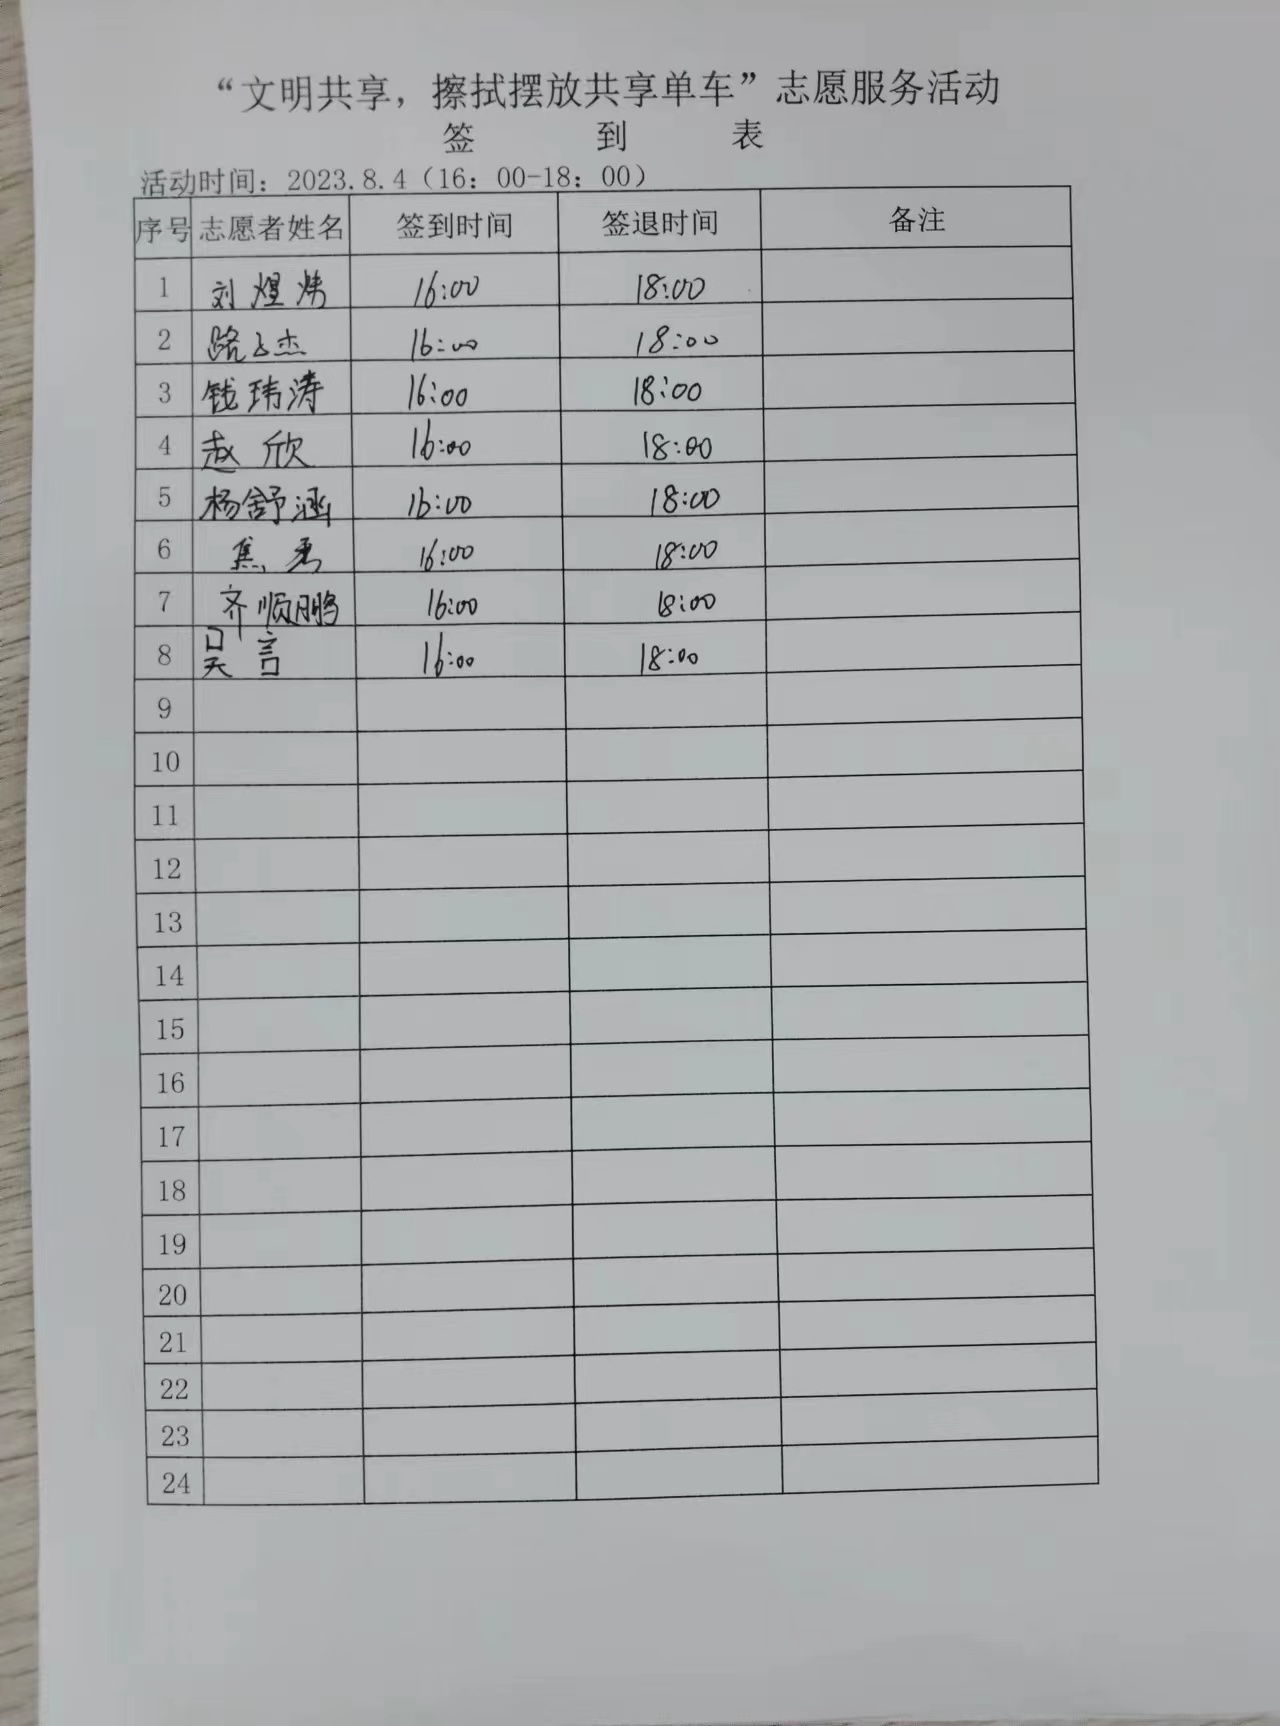 “文明共享，擦拭摆放共享单车”志愿服务活动
签 到 表
活动时间：2023.8.4（16：00-18：00）
序号 志愿者姓名 签到时间 签退时间 备注
1 刘煜炜 16:00 18:00
2 路子杰 16:00 18:00
3 钱玮涛 16:00 18:00
4 赵欣 16:00 18:00
5 杨舒涵 16:00 18:00
6 焦 16:00 18:00
7 齐顺鹏 16:00 18:00
8 吴言 16:00 18:00
9
10
11
12
13
14
15
16
17
18
19
20
21
22
23
24